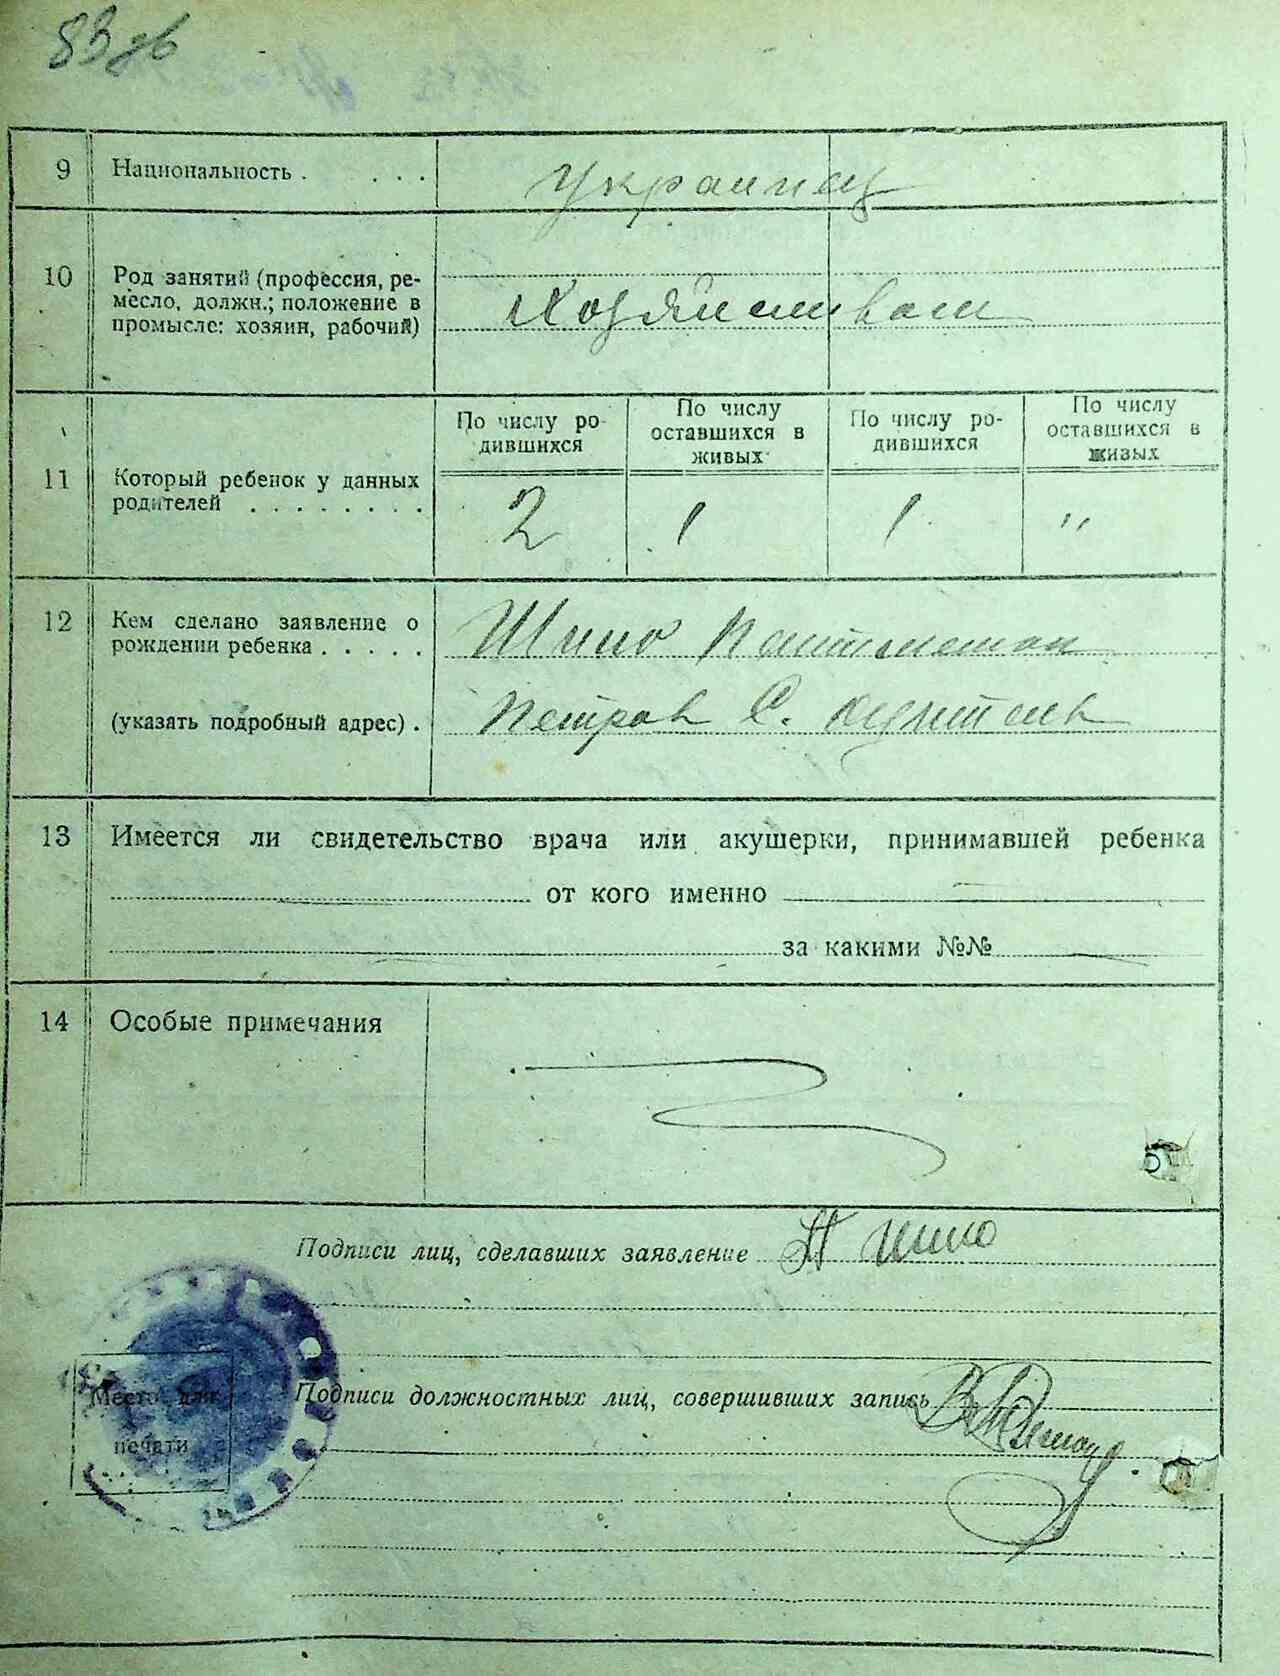 83 зв
9 Национальность . . . . украинец
10 Род занятий (профессия, ре-
месло, должн.; положение в
промысле: хозяин, рабочий)
По числу ро-
дившихся
По числу
оставшихся в
живых
По числу ро-
дившихся
По числу
оставшихся в
живых
11 Который ребенок у данных
родителей . . . . . . . .
2 1 1 "
12 Кем сделано заявление о
рождении ребенка . . . . .
Шило
(указать подробный адрес) .
Петров С.
13 Имеется ли свидетельство врача или акушерки, принимавшей ребенка
от кого именно
за какими №№
14 Особые примечания
5
Подписи лиц, сделавших заявление
Место для
печати
Подписи должностных лиц, совершивших запись